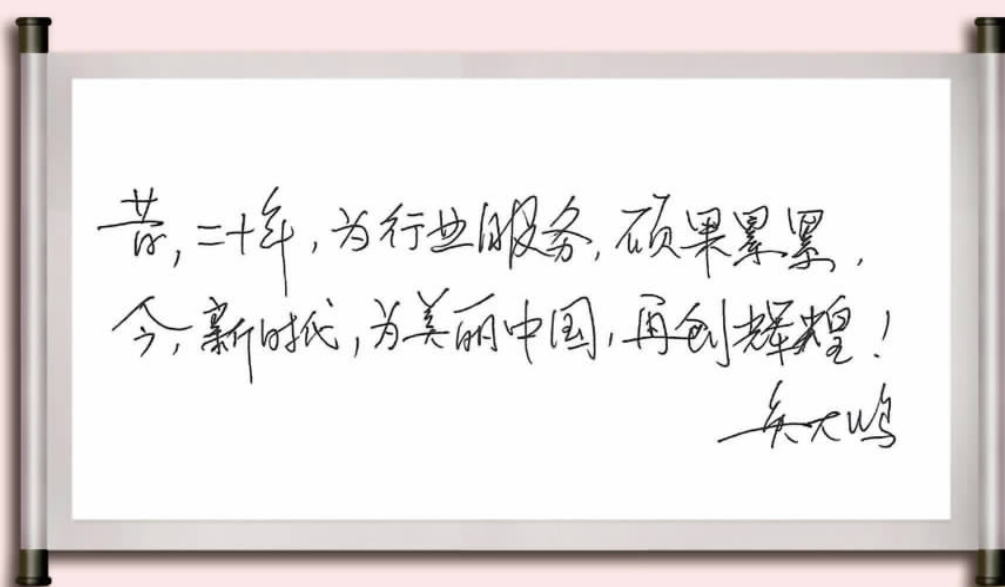 昔,二十年,为行业服务,硕果累累,
今,新时代,为美丽中国,再创辉煌!
吴大鸣